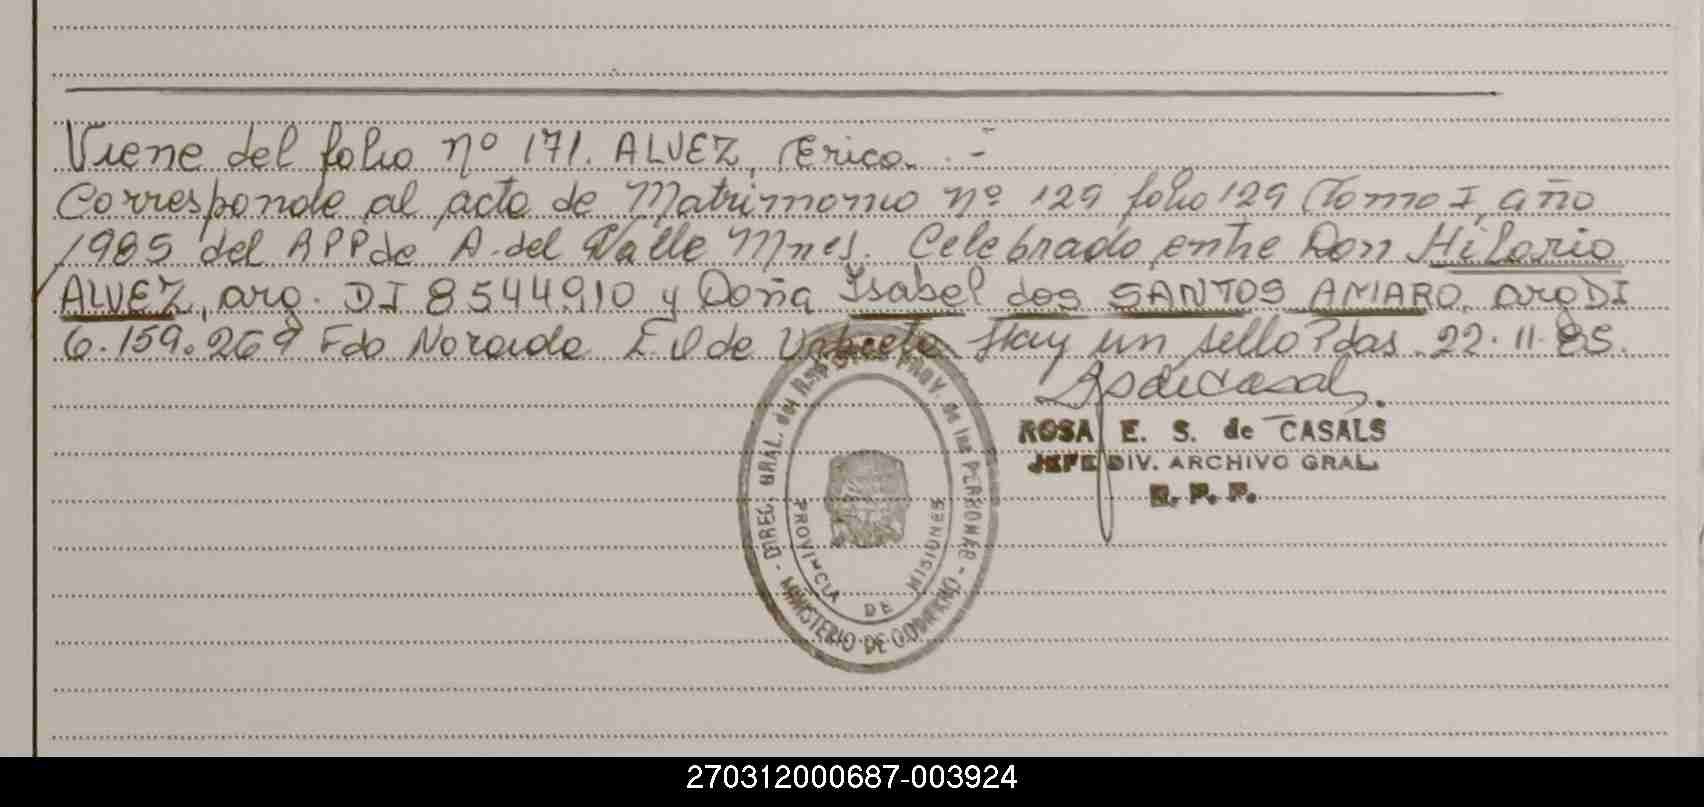 Viene del folio nº 171. ALVEZ, Erico. -
Corresponde al acta de Matrimonio nº 129 folio 129 Tomo I, año
1985 del RPP de A. del Valle Mnes. Celebrado entre Don Hilario
ALVEZ, arg. DI 8544910 y Doña Isabel dos SANTOS AMARO, arg DI
6.159.269 Fdo Noraida E. V de Hay un sello Pdas. 22.11.85.
ROSA E. S. de CASALS
JEFE DIV. ARCHIVO GRAL.
R. P. P.
DIREC. GRAL. del Reg. PROV. de las PERSONAS
PROVINCIA DE MISIONES
- MINISTERIO DE GOBIERNO -
270312000687-003924